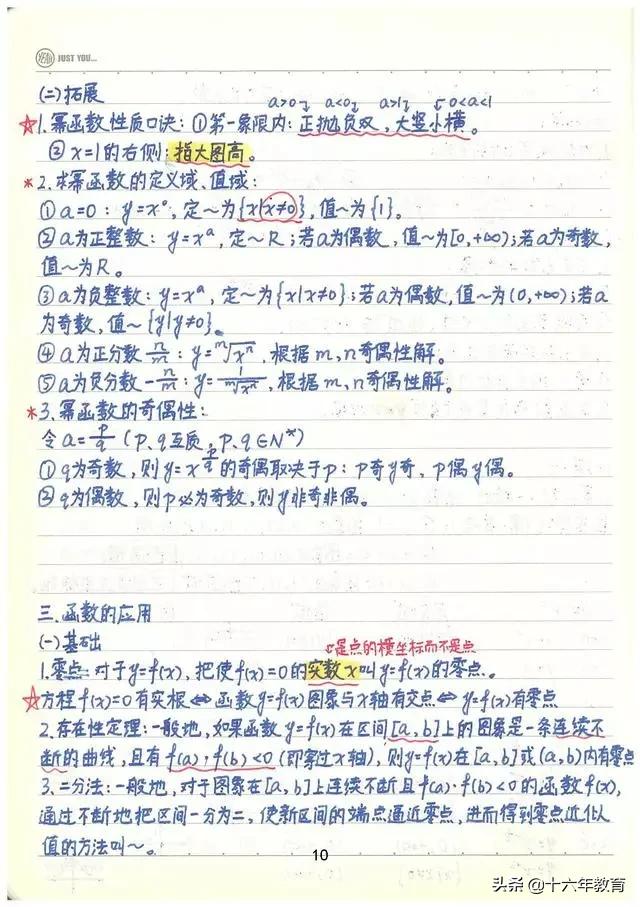 JUST YOU...
(二)拓展
a>0 a<0 a>1 0<a<1
☆1.幂函数性质口诀:①第一象限内:正抛负双,大竖小横。
②x=1的右侧:指大图高。
*2.求幂函数的定义域、值域:
①a=0:y=x⁰,定~为{x|x≠0},值~为{1}。
②a为正整数:y=xᵃ,定~R;若a为偶数,值~为[0,+∞);若a为奇数,
值~为R。
③a为负整数:y=xᵃ,定~为{x|x≠0};若a为偶数,值~为(0,+∞);若a
为奇数,值~{y|y≠0}。
④a为正分数n/m:y=ᵐ√xⁿ,根据m,n奇偶性解。
⑤a为负分数-n/m:y=1/ᵐ√xⁿ,根据m,n奇偶性解。
*3.幂函数的奇偶性:
令a=p/q(p、q互质,p、q∈N*)
①q为奇数,则y=x^(p/q)的奇偶取决于p:p奇y奇,p偶y偶。
②q为偶数,则p必为奇数,则y非奇非偶。
三.函数的应用
(一)基础
是点的横坐标而不是点
1.零点:对于y=f(x),把使f(x)=0的实数x叫y=f(x)的零点。
☆方程f(x)=0有实根⇔函数y=f(x)图象与x轴有交点⇔y=f(x)有零点
2.存在性定理:一般地,如果函数y=f(x)在区间[a,b]上的图象是一条连续不
断的曲线,且有f(a)·f(b)<0(即穿过x轴),则y=f(x)在[a,b]或(a,b)内有零点
3.二分法:一般地,对于图象在[a,b]上连续不断且f(a)·f(b)<0的函数f(x),
通过不断地把区间一分为二,使新区间的端点逼近零点,进而得到零点近似
值的方法叫~。
10
头条@十六年教育